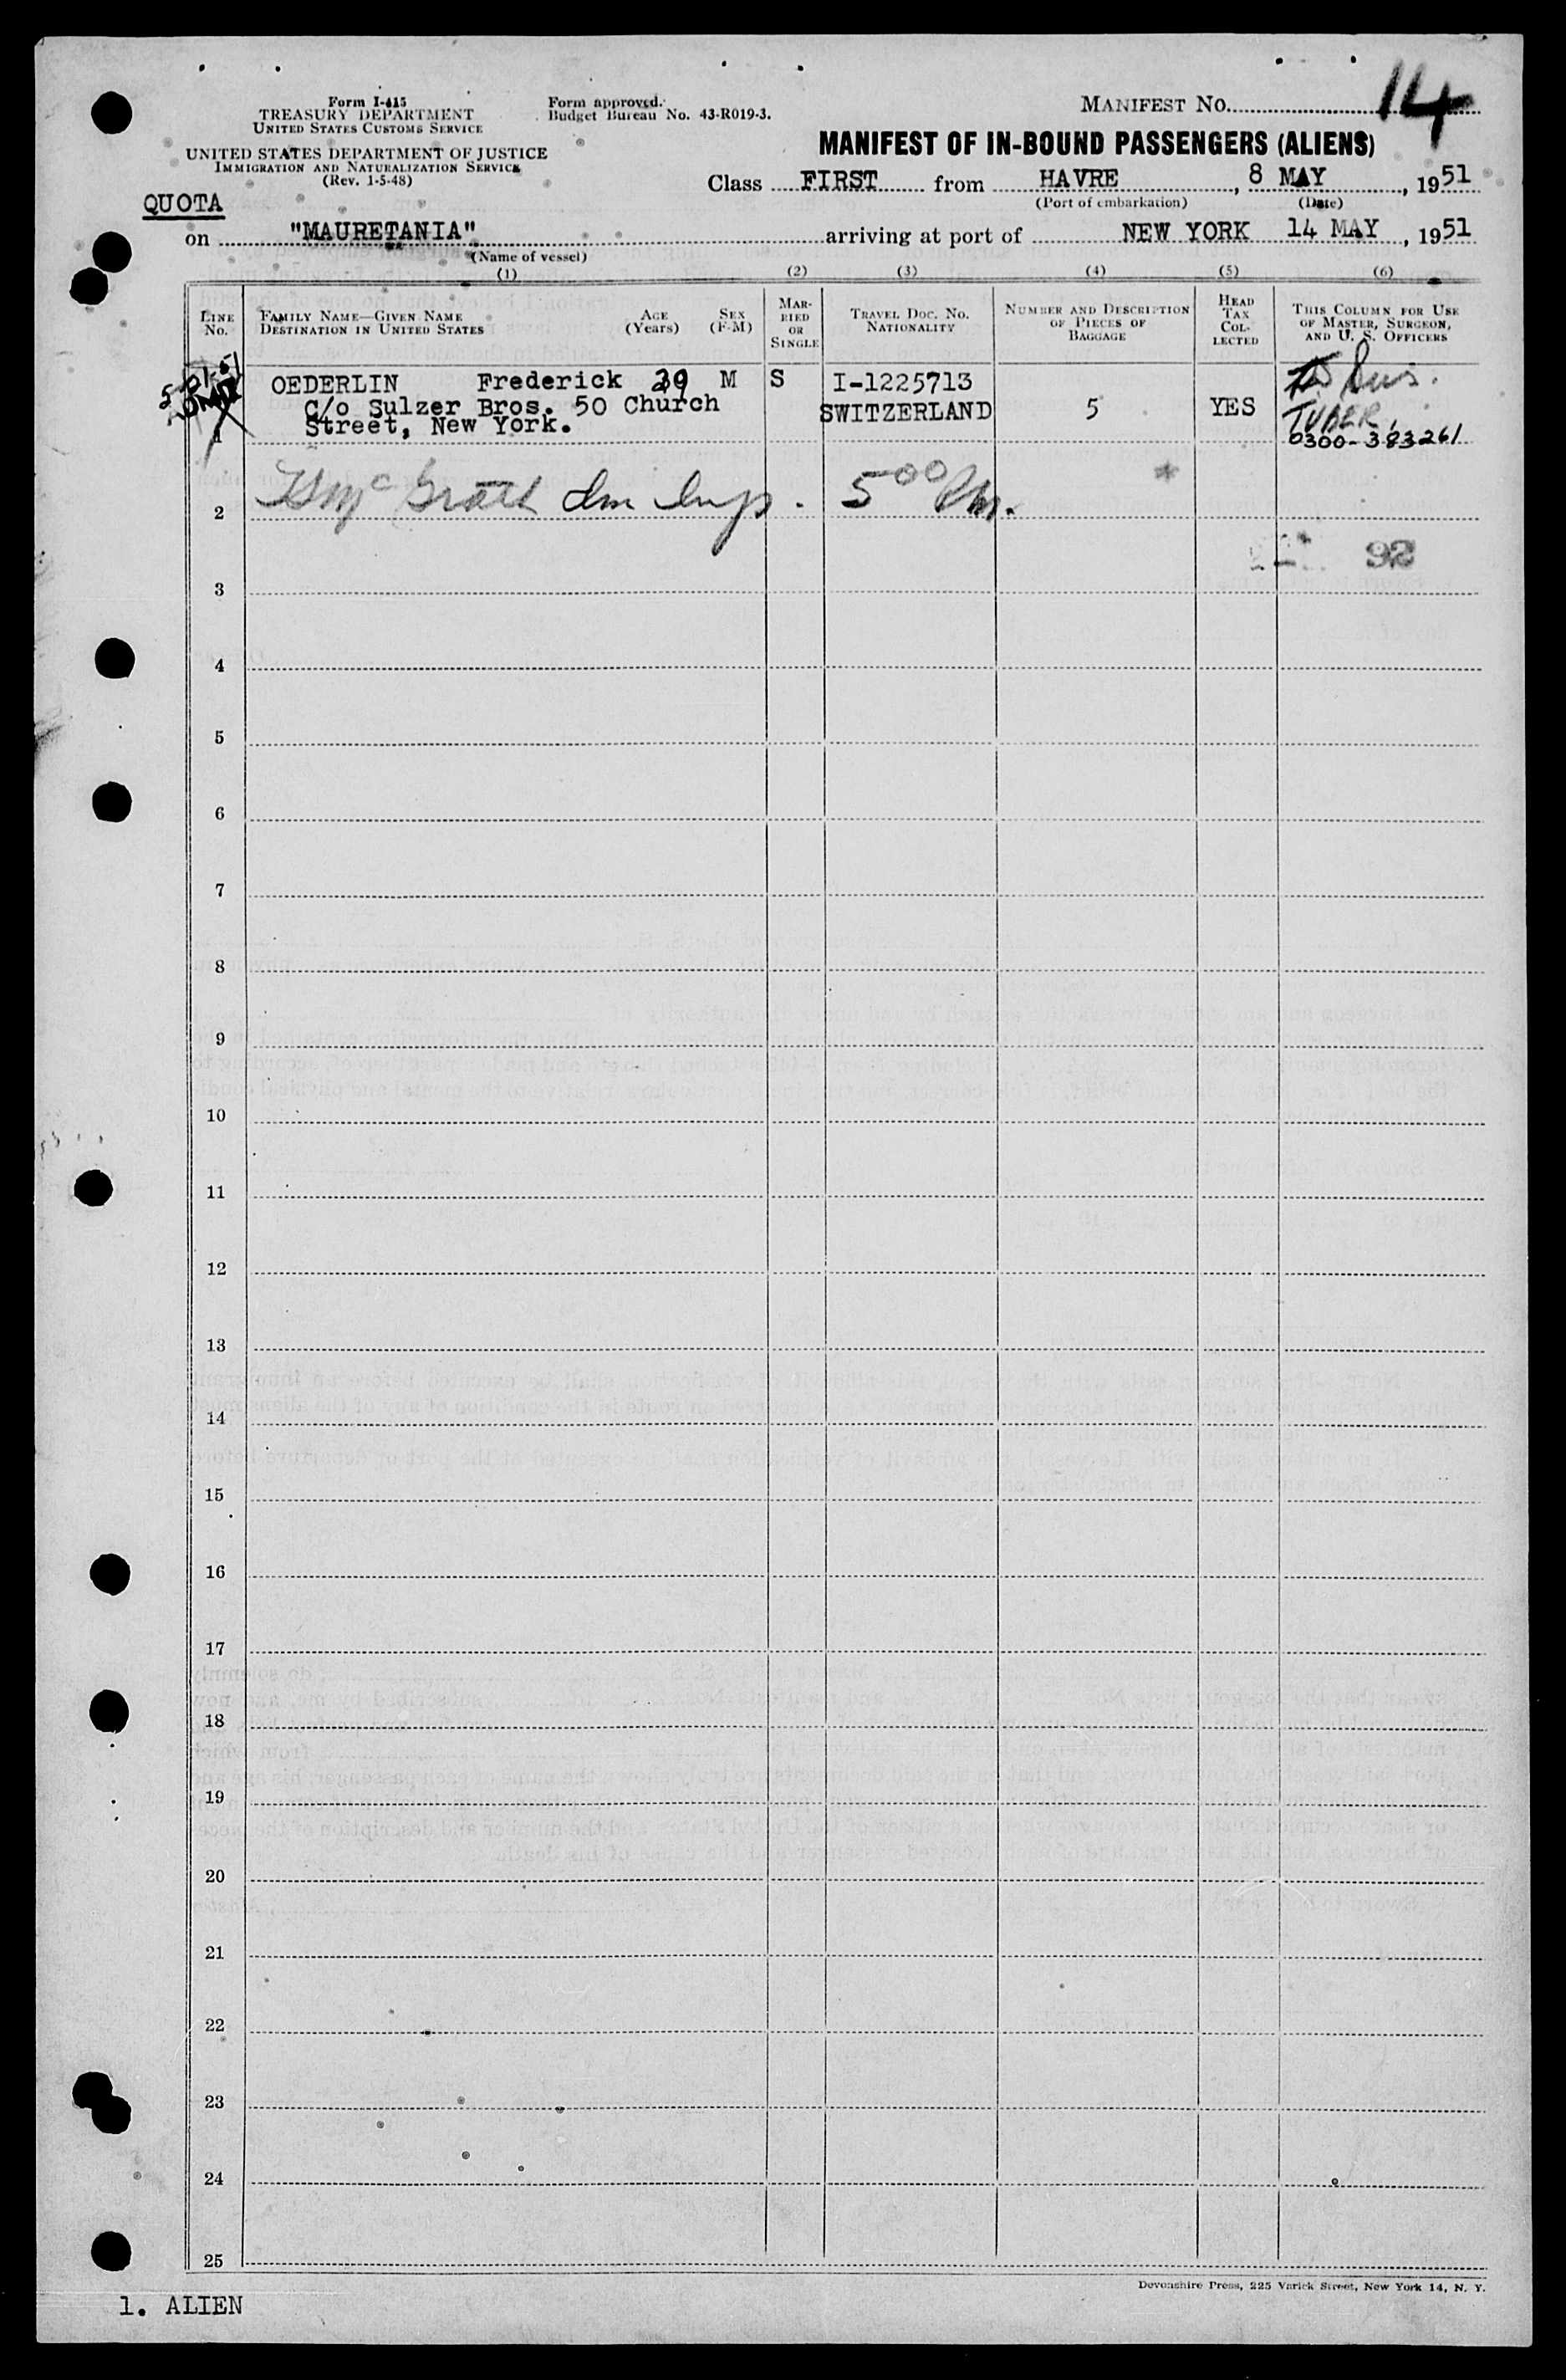 MANIFEST NO. 14
Form I-415
TREASURY DEPARTMENT
UNITED STATES CUSTOMS SERVICE
Form approved.
Budget Bureau No. 43-R019-3.
UNITED STATES DEPARTMENT OF JUSTICE
IMMIGRATION AND NATURALIZATION SERVICE
(Rev. 1-5-48)
MANIFEST OF IN-BOUND PASSENGERS (ALIENS)
Class FIRST from HAVRE, 8 MAY, 1951
(Port of embarkation) (Date)
QUOTA
on "MAURETANIA" arriving at port of NEW YORK 14 MAY, 1951
(Name of vessel)
(1) (2) (3) (4) (5) (6)
LINE NO.
FAMILY NAME—GIVEN NAME
DESTINATION IN UNITED STATES
AGE (Years)
SEX (F-M)
MARRIED OR SINGLE
TRAVEL DOC. NO.
NATIONALITY
NUMBER AND DESCRIPTION OF PIECES OF BAGGAGE
HEAD TAX COLLECTED
THIS COLUMN FOR USE OF MASTER, SURGEON, AND U. S. OFFICERS
1 OEDERLIN Frederick 39 M S I-1225713
C/o Sulzer Bros. 50 Church SWITZERLAND 5 YES
Street, New York.
0300-383261
2 McGrath Imm Insp. 5 00 Pm.
92
3
4
5
6
7
8
9
10
11
12
13
14
15
16
17
18
19
20
21
22
23
24
25
Devonshire Press, 225 Varick Street, New York 14, N. Y.
1. ALIEN